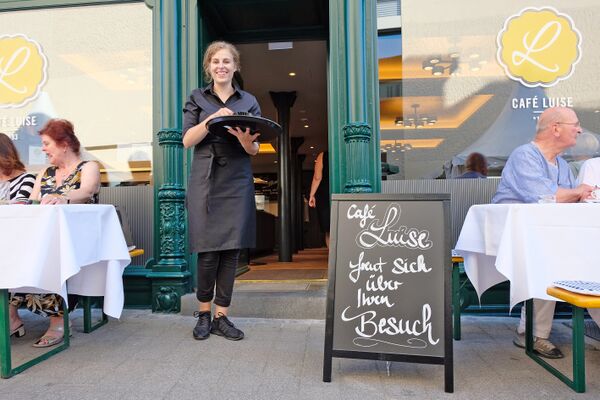 L
L
CAFÉ LUISE
CAFÉ LUISE
Café
Luise
freut Sich
über
Ihren
Besuch